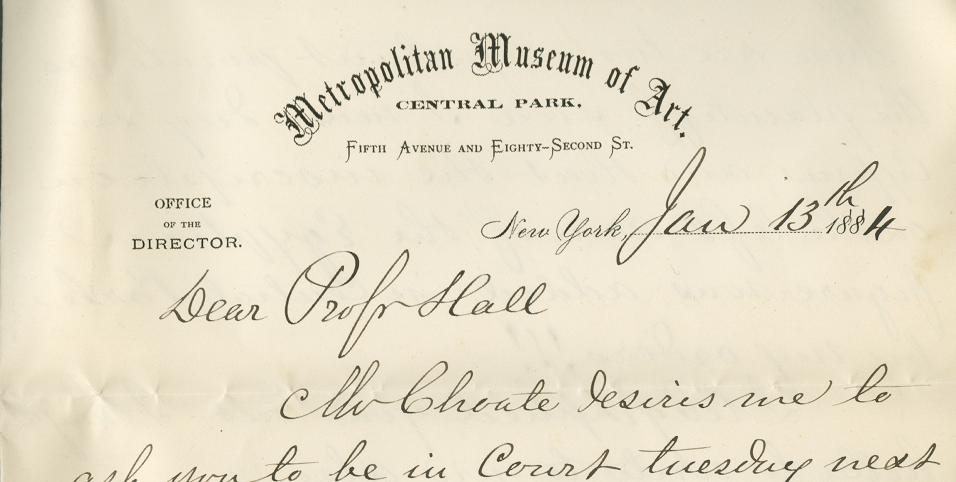 Metropolitan Museum of Art.
CENTRAL PARK.
FIFTH AVENUE AND EIGHTY-SECOND ST.
OFFICE
OF THE
DIRECTOR.
New York, Jan 13th 1884
Dear Profr Hall
Mr Choate desires me to
ask you to be in Court tuesday next